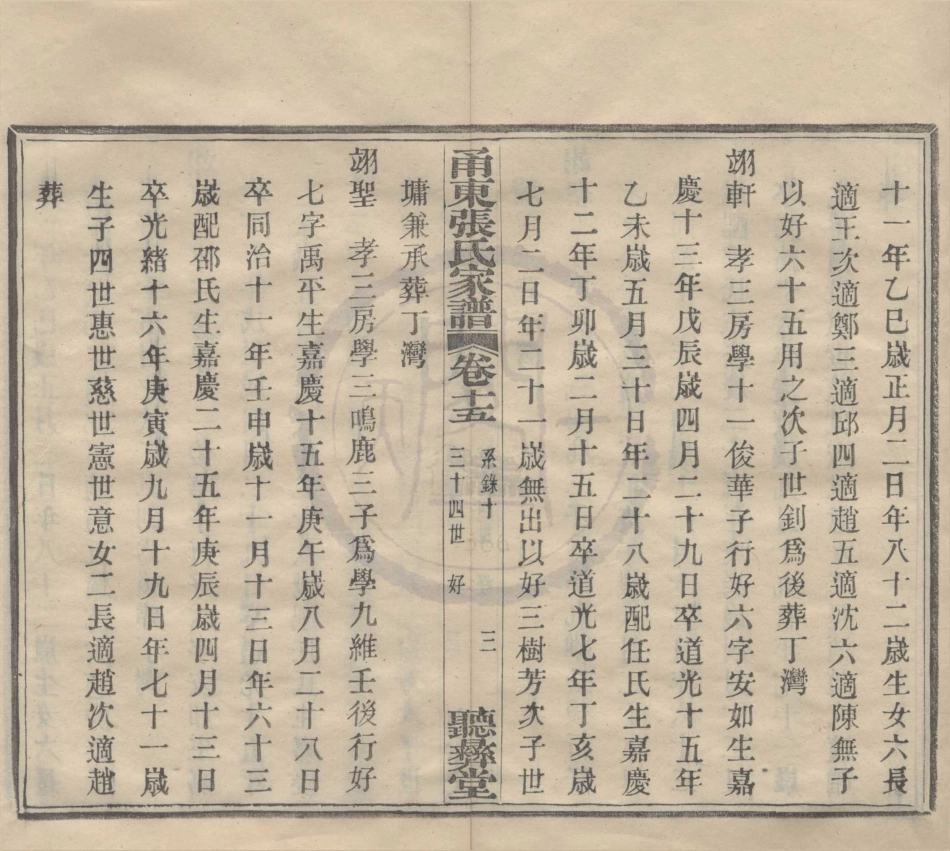 十一年乙巳歲正月二日年八十二歲生女六長
適王次適鄭三適邱四適趙五適沈六適陳無子
以好六十五用之次子世釗爲後葬丁灣
翊軒 孝三房學十一俊華子行好六字安如生嘉
慶十三年戊辰歲四月二十九日卒道光十五年
乙未歲五月三十日年二十八歲配任氏生嘉慶
十二年丁卯歲二月十五日卒道光七年丁亥歲
七月二日年二十一歲無出以好三樹芳次子世
甬東張氏家譜 卷十五 系錄十 三十四世 好 三 聽彝堂
墉兼承葬丁灣
翊聖 孝三房學三鳴鹿三子爲學九維壬後行好
七字禹平生嘉慶十五年庚午歲八月二十八日
卒同治十一年壬申歲十一月十三日年六十三
歲配邵氏生嘉慶二十五年庚辰歲四月十三日
卒光緒十六年庚寅歲九月十九日年七十一歲
生子四世惠世慈世憲世意女二長適趙次適趙
葬